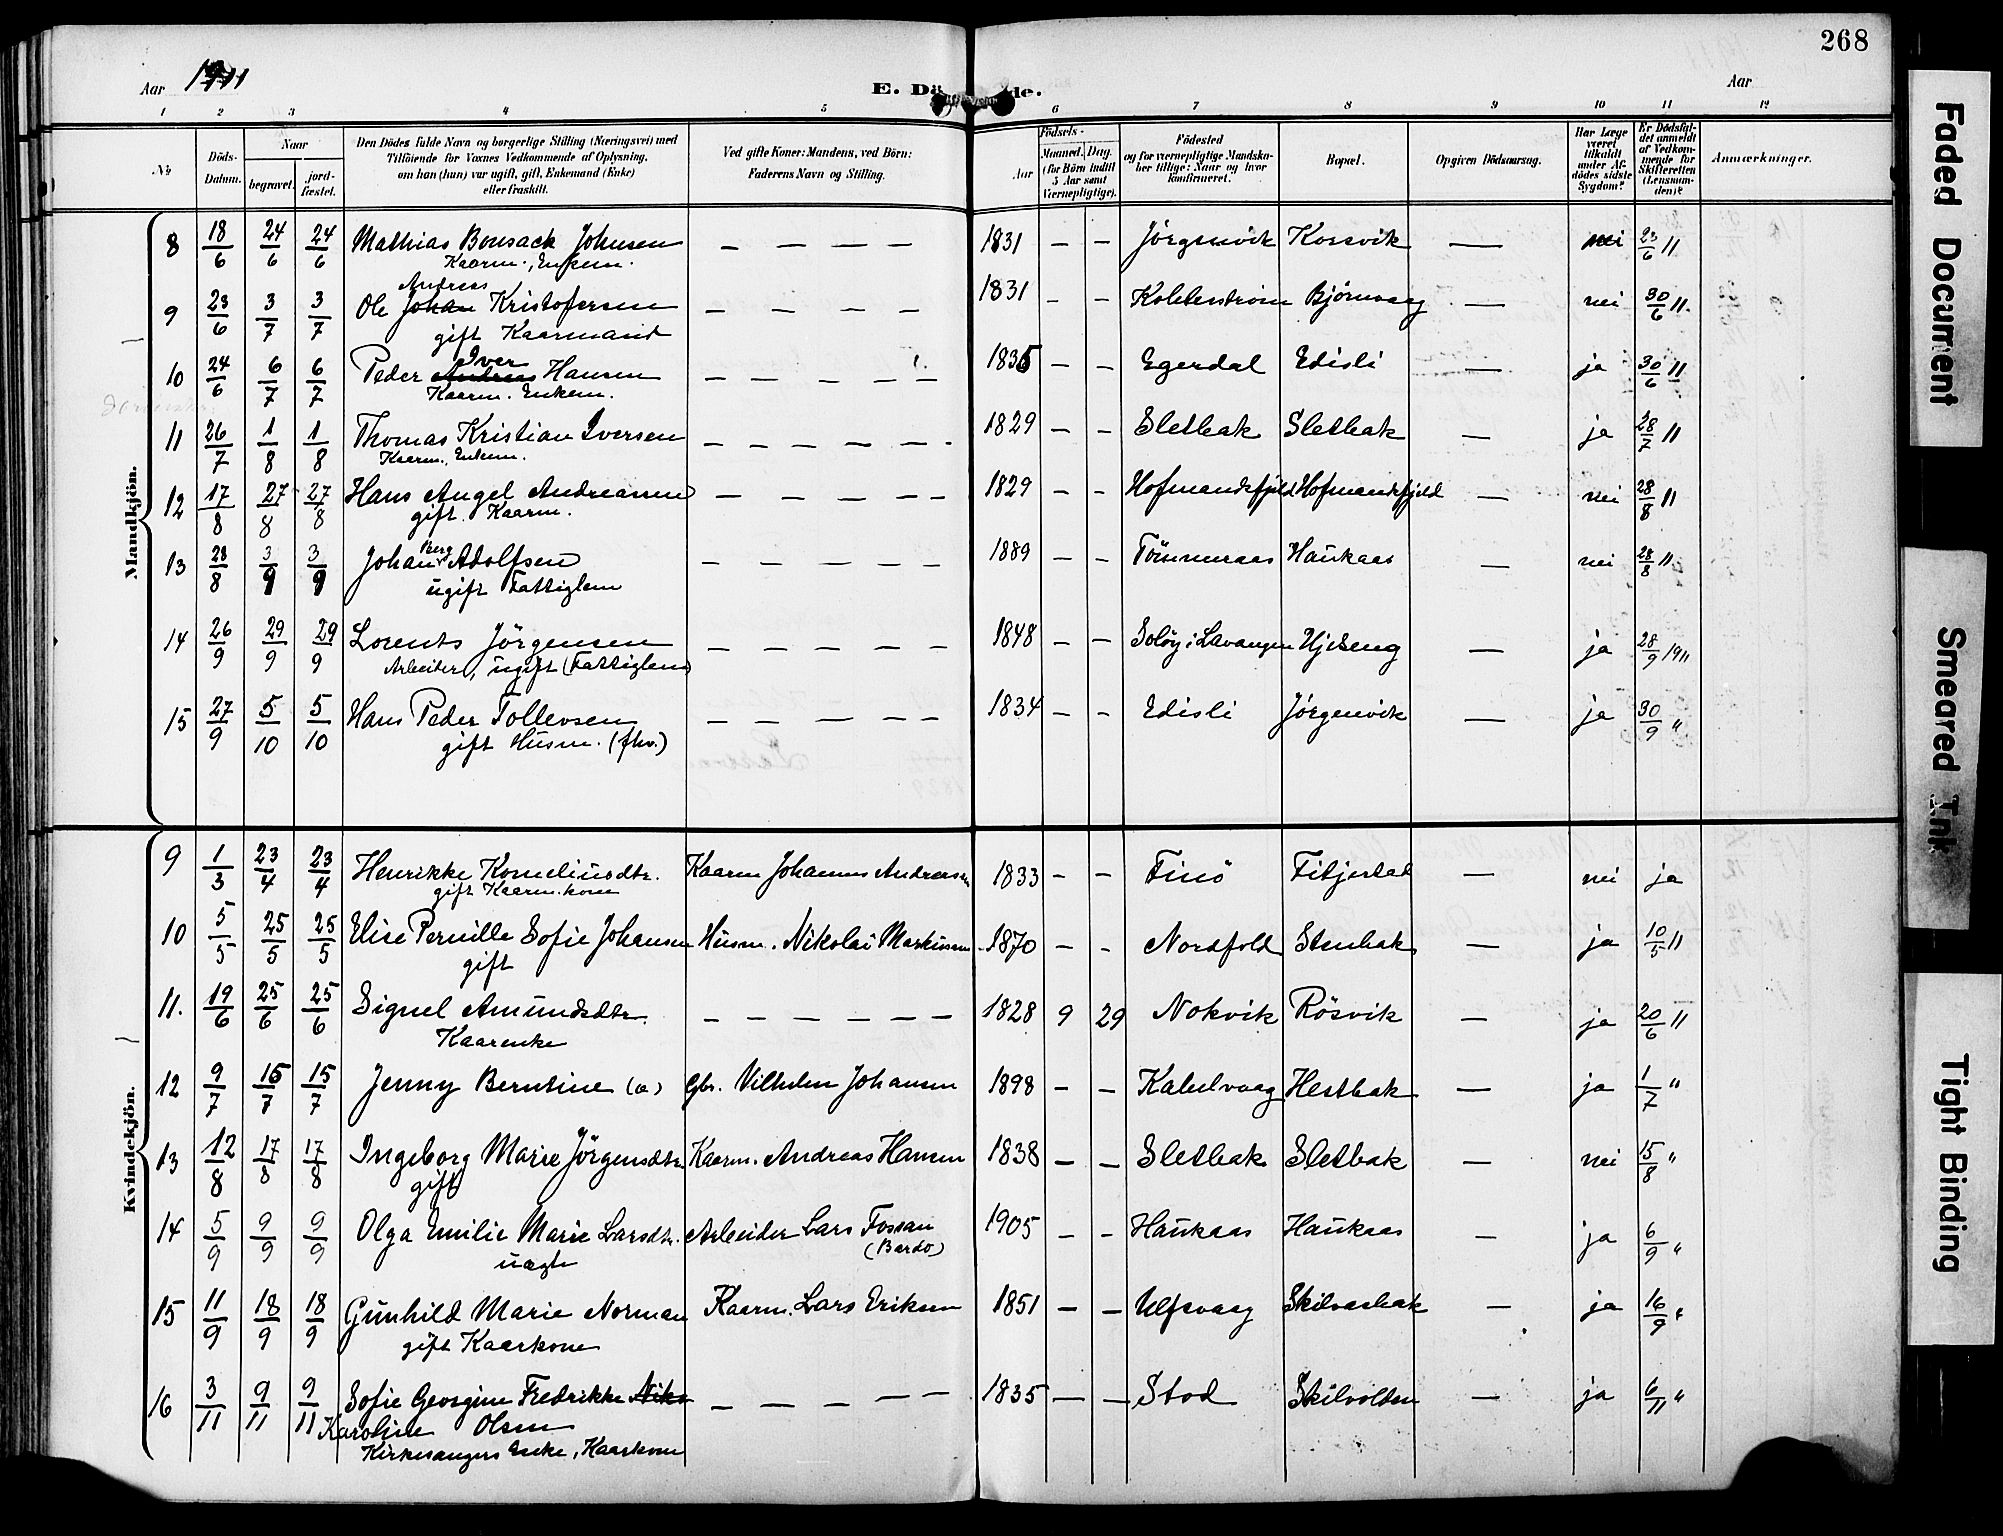 268
Aar 1911
E. Dö de.
Aar
1 2 3 4 5 6 7 8 9 10 11 12
No
Döds-Datum.
Naar
begravet.
jord-fæstet.
Den Dödes fulde Navn og borgerlige Stilling (Næringsvei) med
Tilföiende for Voxnes Vedkommende af Oplysning,
om han (hun) var ugift, gift, Enkemand (Enke)
eller fraskilt.
Ved gifte Koner: Mandens, ved Börn:
Faderens Navn og Stilling.
Födsels-
Aar
Maaned. Dag.
(for Börn indtil
5 Aar samt
Værnepligtige).
Födested
og for værnepligtige Mandska-
ber tillige: Naar og hvor
konfirmeret.
Bopæl.
Opgiven Dödsaarsag.
Har Læge
været
tilkaldt
under Af-
dödes sidste
Sygdom?
Er Dödsfal-
det anmeldt
af Vedkom-
mende for
Skifteretten
(Lensman-
den)?
Anmærkninger.
Mandkjön.
8 18/6 24/6 24/6 Mathias Bonsack Johnsen — — — — 1831 — — Jörgenvik Korsvik — nei 23/6 11
Kaarm., Enkem.
Andreas
9 23/6 3/7 3/7 Ole Johan Kristofersen — — — — 1831 — — Kobberström Björnvaag — nei 30/6 11.
gift Kaarmand
Iver
10 24/6 6/7 6/7 Peder Andreas Hansen — — — — — 1835 — — Egerdal Edisli — ja 30/6 11
Kaarm. Enkem.
11 26/7 1/8 1/8 Thomas Kristian Iversen — — — — — 1829 — — Sletbak Sletbak — ja 28/7 11
Kaarm., Enkem.
12 17/8 27/8 27/8 Hans Angel Andreassen — — — — — 1829 — — Hofmandsfjeld Hofmandsfjeld — nei 28/8 11
gift. Kaarm.
Berg
13 28/8 3/9 3/9 Johan Adolfsen — — — — — 1889 — — Tömmeraas Haukaas — nei 28/8 11
ugift Fattiglem
14 26/9 29/9 29/9 Lorents Jörgensen — — — — — 1848 — — Solöy i Lavangen Ujeseng — ja 28/9 1911
Arbeider, ugift (Fattiglem)
15 27/9 5/10 5/10 Hans Peder Tollevsen — — — — — 1834 — — Edisli Jörgenvik — ja 30/9 "
gift Husm. (fhv.)
Kvindekjön.
9 1/3 23/4 23/4 Henrikke Korneliusdtr. Kaarm Johannes Andreassen 1833 — — Finö Fitjestad — nei ja
gift Kaarm.kone
10 5/5 25/5 25/5 Elise Pernille Sofie Johansen Husm. Nikolai Markussen 1870 — — Nordfold Stenbak — ja 10/5 11
gift
11. 19/6 25/6 25/6 Signel Amundsdtr. — — — — — — 1828 9 29 Nokvik Rösvik — ja 20/6 11
Kaarenke
12 9/7 15/7 15/7 Jenny Berntine (a) Gbr. Vilhelm Johansen 1898 — — Kabelvaag Hestbak — ja 1/7 "
13 12/8 17/8 17/8 Ingeborg Marie Jörgensdtr. Kaarm. Andreas Hansen 1838 — — Sletbak Sletbak — nei 15/8 "
gift
14 5/9 9/9 9/9 Olga Emilie Marie Larsdtr. Arbeider Lars Fossan 1905 — — Haukaas Haukaas — ja 6/9 "
uægte (Bardo)
15 11/9 18/9 18/9 Gunhild Marie Norman Kaarm. Lars Eriksen 1851 — — Ulfsvaag Skilvasbak — ja 16/9 "
gift Kaarkone
16 3/11 9/11 9/11 Sofie Georgine Fredrikke Niko — — — — — — 1835 — — Stod Skilvolden — ja 6/11 "
Karoline Olsen
Kirkesangers Enke, Kaarkone
Faded Document
Smeared Ink
Tight Binding